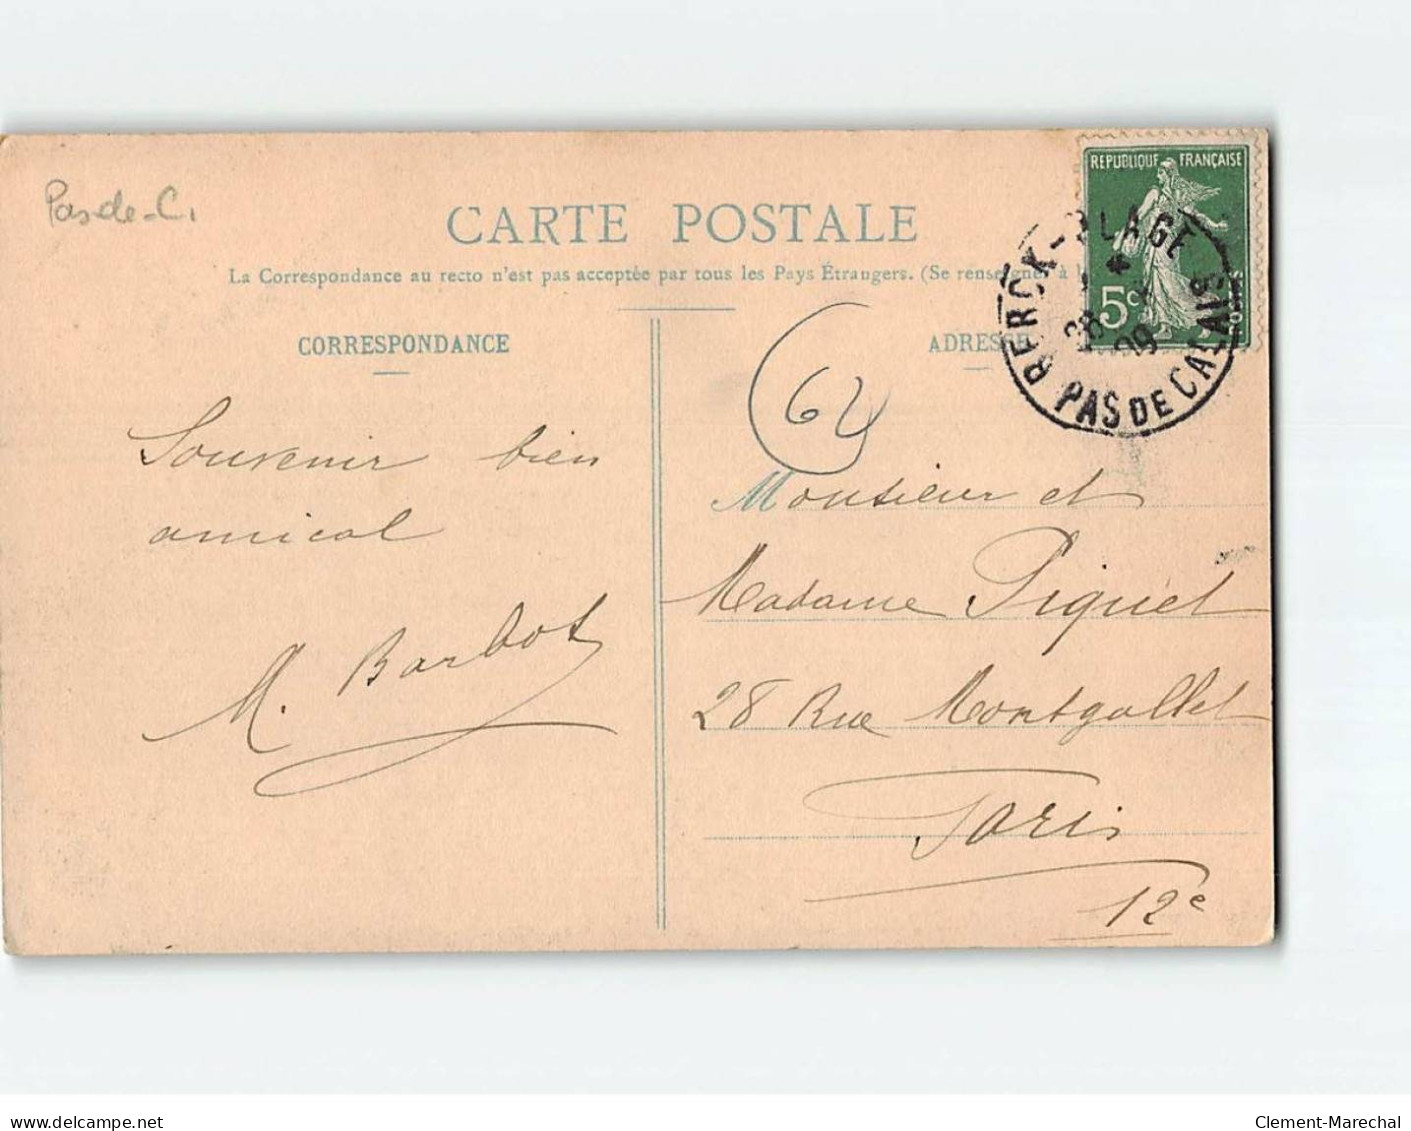 Pas-de-C.
CARTE POSTALE
La Correspondance au recto n'est pas acceptée par tous les Pays Étrangers. (Se renseigner à l
CORRESPONDANCE
ADRESSE
REPUBLIQUE FRANÇAISE
5c
BERCK-PLAGE
28
09
PAS DE CALAIS
62
Souvenir bien
amical
M. Barbot
Monsieur et
Madame Piquet
28 Rue Montgallet
Paris
12e
delcampe.net
Clement-Marechal